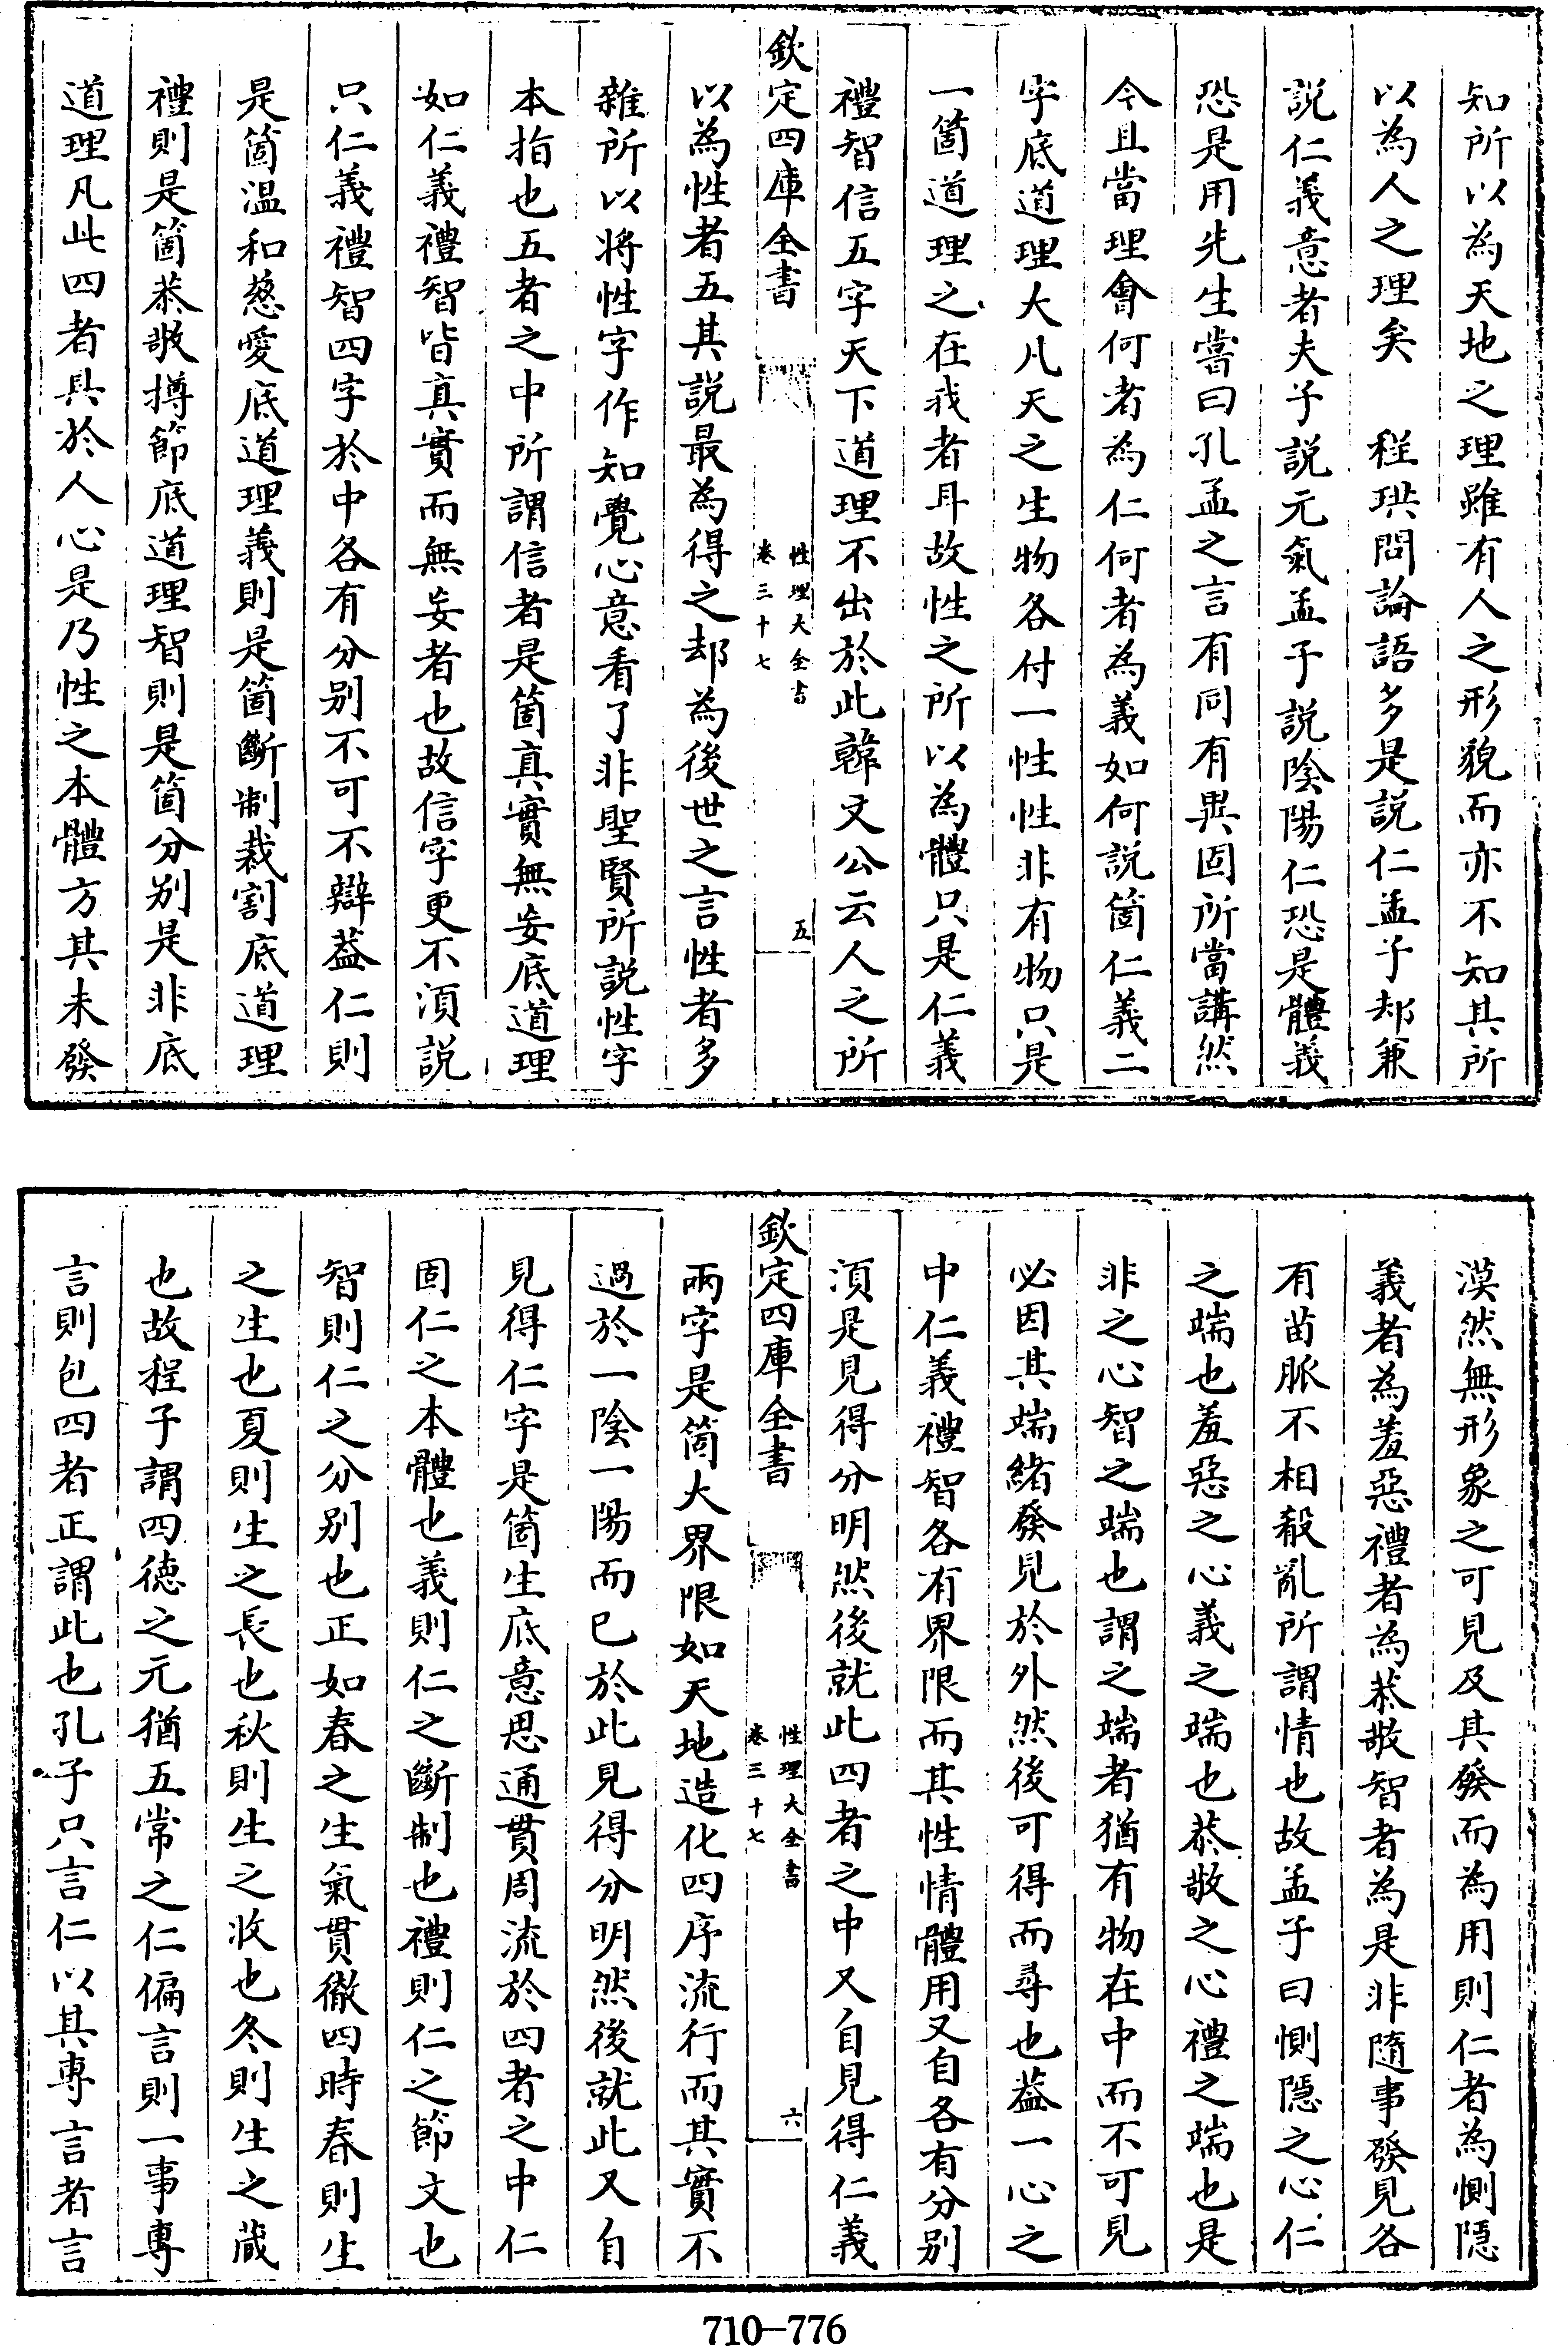 知所以為天地之理雖有人之形貌而亦不知其所
以為人之理矣　程珙問論語多是說仁孟子却兼
說仁義意者夫子說元氣孟子說陰陽仁恐是體義
恐是用先生嘗曰孔孟之言有同有異固所當講然
今且當理會何者為仁何者為義如何說箇仁義二
字底道理大凡天之生物各付一性性非有物只是
一箇道理之在我者耳故性之所以為體只是仁義
禮智信五字天下道理不出於此韓文公云人之所
欽定四庫全書
性理大全書
卷三十七
五
以為性者五其說最為得之却為後世之言性者多
雜所以將性字作知覺心意看了非聖賢所說性字
本指也五者之中所謂信者是箇真實無妄底道理
如仁義禮智皆真實而無妄者也故信字更不湏說
只仁義禮智四字於中各有分别不可不辯葢仁則
是箇温和慈愛底道理義則是箇斷制裁割底道理
禮則是箇恭敬撙節底道理智則是箇分别是非底
道理凡此四者具於人心是乃性之本體方其未發
漠然無形象之可見及其發而為用則仁者為惻隠
義者為羞惡禮者為恭敬智者為是非隨事發見各
有苗脈不相殽亂所謂情也故孟子曰惻隠之心仁
之端也羞惡之心義之端也恭敬之心禮之端也是
非之心智之端也謂之端者猶有物在中而不可見
必因其端緒發見於外然後可得而尋也葢一心之
中仁義禮智各有界限而其性情體用又自各有分别
湏是見得分明然後就此四者之中又自見得仁義
欽定四庫全書
性理大全書
卷三十七
六
兩字是箇大界限如天地造化四序流行而其實不
過於一陰一陽而已於此見得分明然後就此又自
見得仁字是箇生底意思通貫周流於四者之中仁
固仁之本體也義則仁之斷制也禮則仁之節文也
智則仁之分别也正如春之生氣貫徹四時春則生
之生也夏則生之長也秋則生之收也冬則生之蔵
也故程子謂四徳之元猶五常之仁偏言則一事專
言則包四者正謂此也孔子只言仁以其專言者言
710—776